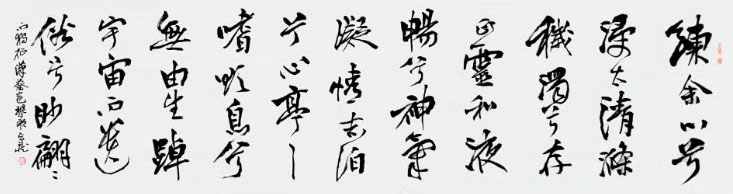 練余心兮
浸太清滌
穢濁兮存
正靈和液
暢兮神氣
凝情志泊
兮心亭々
嗜欲息兮
無由生踔
宇宙而遺
俗兮眇翩々
而獨征 漢蔡邕琴歌